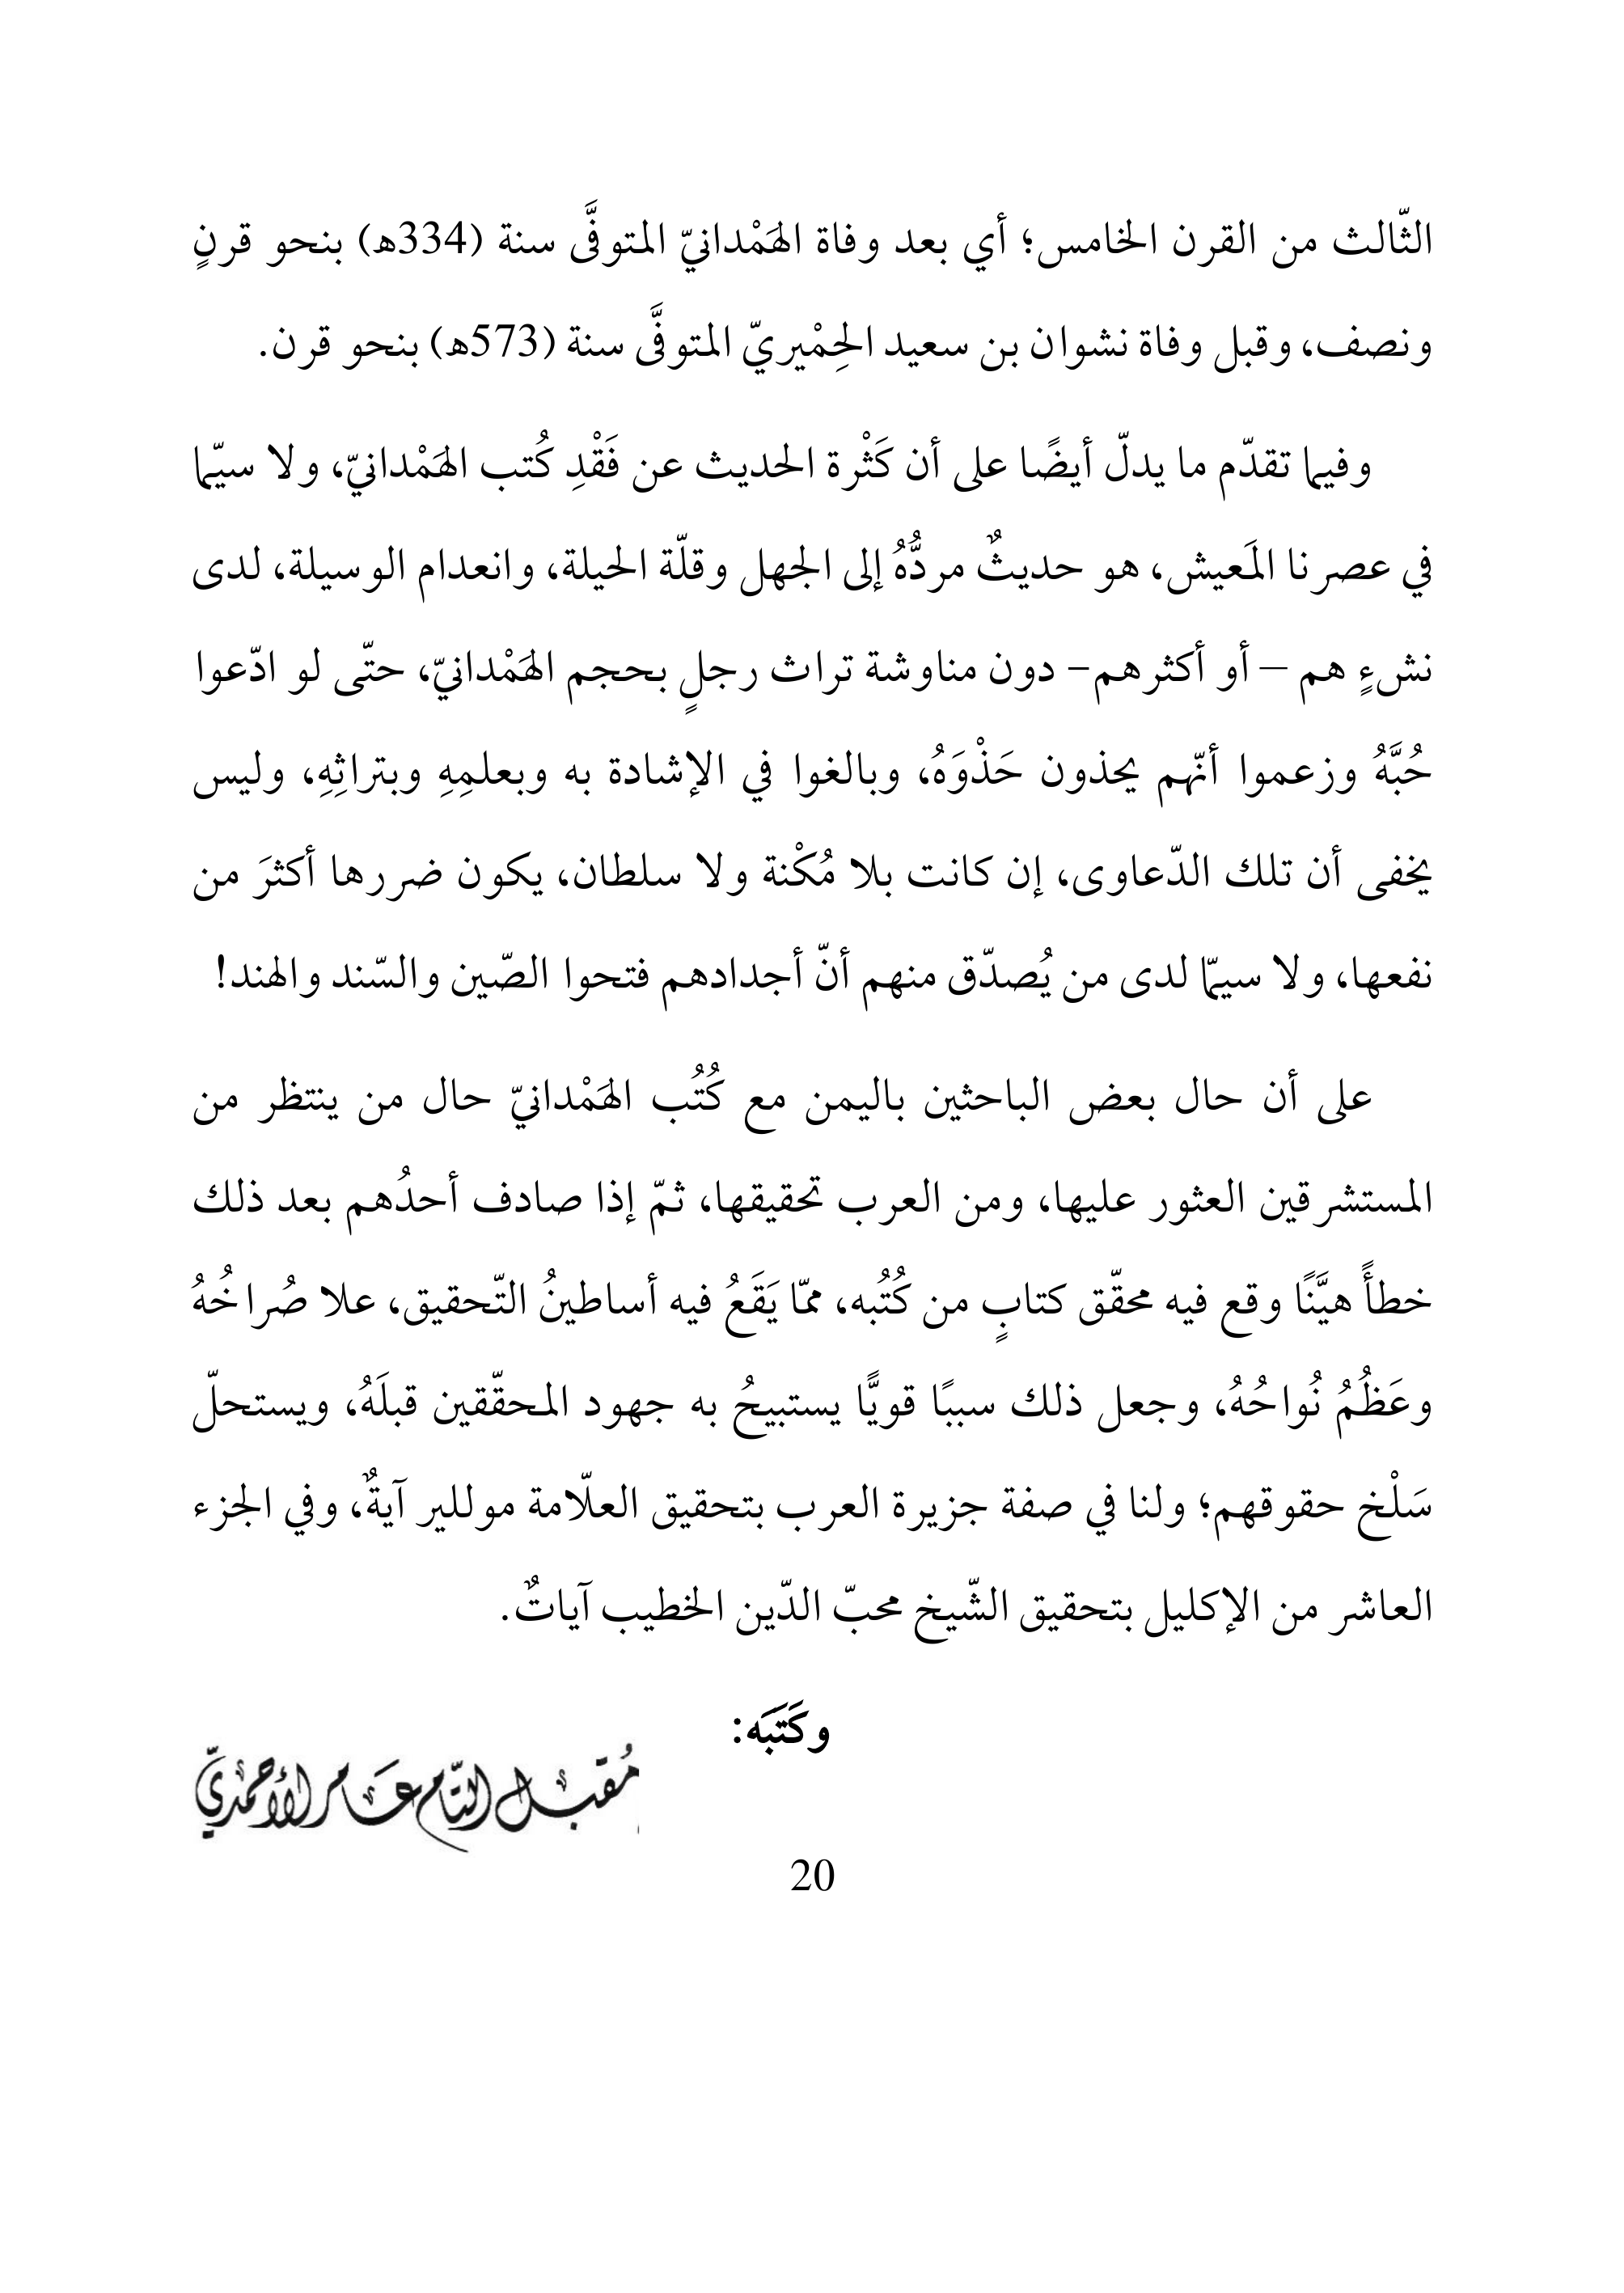 الثّالث من القرن الخامس؛ أي بعد وفاة الهَمْدانيّ المتوفَّى سنة (334ه) بنحو قرنٍ
ونصف، وقبل وفاة نشوان بن سعيد الحِمْيريّ المتوفَّى سنة (573ه) بنحو قرن.
وفيما تقدّم ما يدلّ أيضًا على أن كَثْرة الحديث عن فَقْدِ كُتب الهَمْدانيّ، ولا سيّما
في عصرنا المَعيش، هو حديثٌ مردُّهُ إلى الجهل وقلّة الحيلة، وانعدام الوسيلة، لدى
نشءٍ هم – أو أكثرهم– دون مناوشة تراث رجلٍ بحجم الهَمْدانيّ، حتّى لو ادّعوا
حُبَّهُ وزعموا أنّهم يحذون حَذْوَهُ، وبالغوا في الإشادة به وبعلمِهِ وبتراثِهِ، وليس
يخفى أن تلك الدّعاوى، إن كانت بلا مُكْنة ولا سلطان، يكون ضررها أكثرَ من
نفعها، ولا سيمّا لدى من يُصدّق منهم أنّ أجدادهم فتحوا الصّين والسّند والهند!
على أن حال بعض الباحثين باليمن مع كُتُب الهَمْدانيّ حال من ينتظر من
المستشرقين العثور عليها، ومن العرب تحقيقها، ثمّ إذا صادف أحدُهم بعد ذلك
خطأً هيَّنًا وقع فيه محقّق كتابٍ من كُتُبه، ممّا يَقَعُ فيه أساطينُ التّحقيق، علا صُراخُهُ
وعَظُمُ نُواحُهُ، وجعل ذلك سببًا قويًّا يستبيحُ به جهود المحقّقين قبلَهُ، ويستحلّ
سَلْخ حقوقهم؛ ولنا في صفة جزيرة العرب بتحقيق العلّامة موللير آيةٌ، وفي الجزء
العاشر من الإكليل بتحقيق الشّيخ محبّ الدّين الخطيب آياتٌ.
وكَتَبَه:
مُقبل التّام عَامر الأحمديّ
20